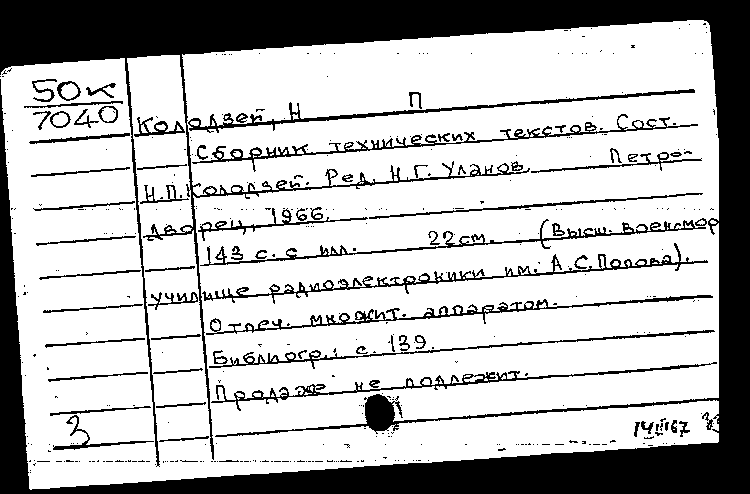 50к
7040
Колодзей, Н П
Сборник технических текстов. Сост.
Н.П.Колодзей. Ред. Н.Г. Уланов. Петро-
дворец, 1966.
143 с. с илл. 22см. (Высш. воен-мор
училище радиоэлектроники им. А.С.Попова).
Отпеч. множит. аппаратом.
Библиогр.: с. 139.
Продаже не подлежит.
3
14III67